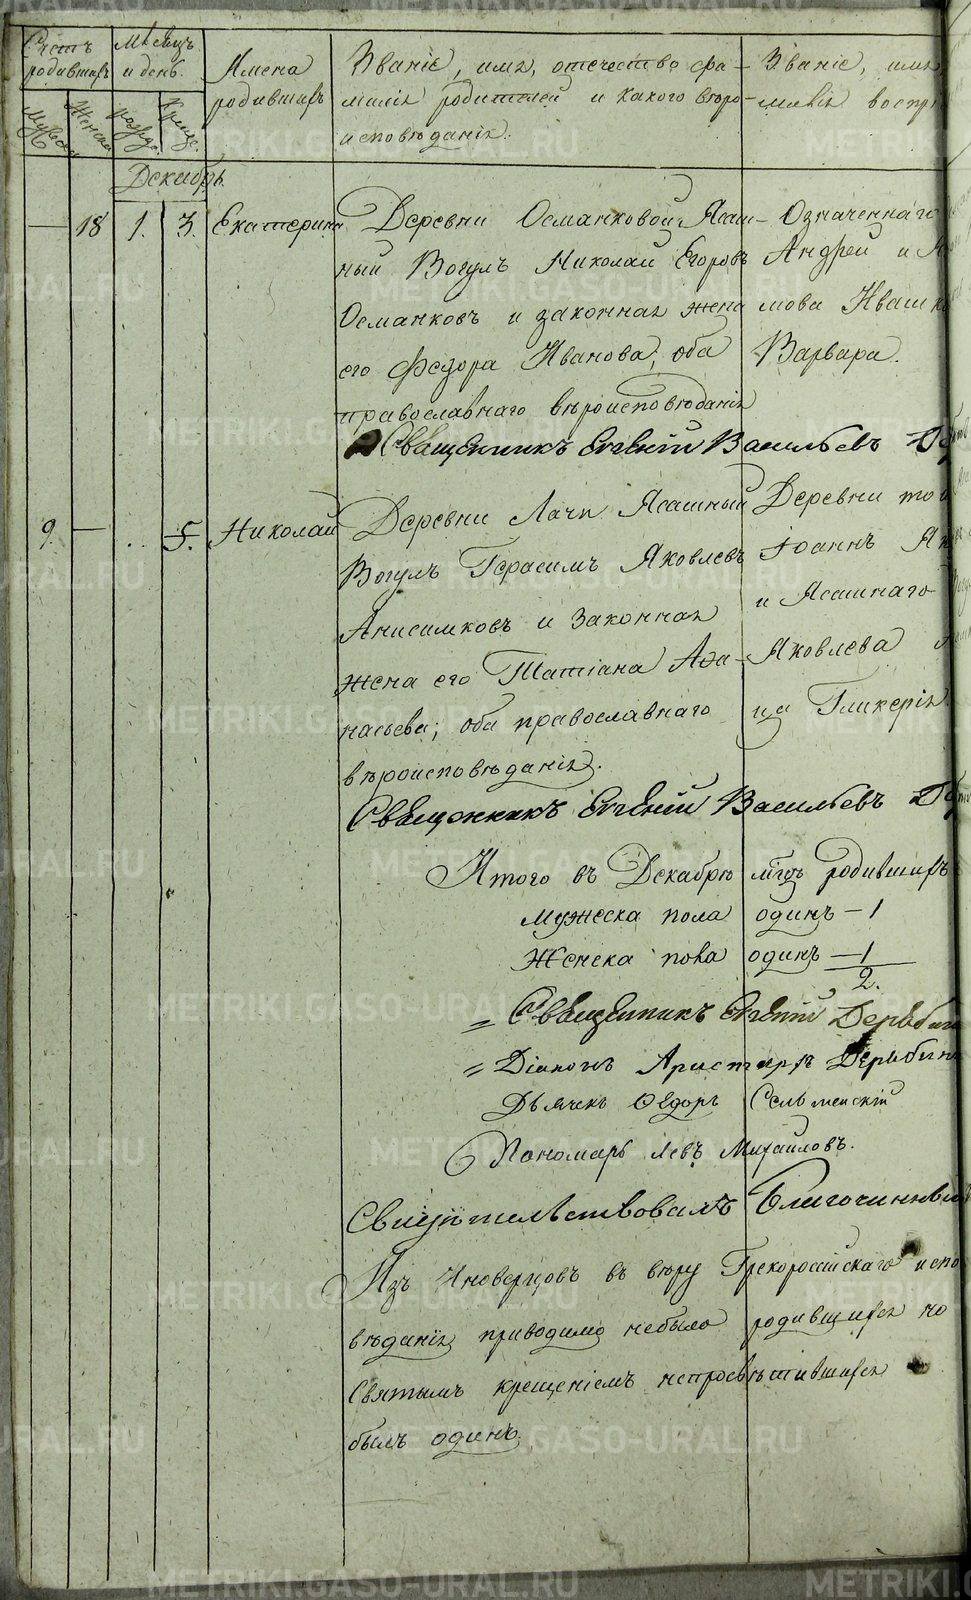 Счетъ родившихъ
Мужеска
Женска
Мѣсяцъ и день.
рожде.
Креще.
Имена родившихъ
Званіе, имя, отечество фа-
милія родителей и какого вѣро-
исповѣданія.
Званіе, имя,
милія воспр
Декабрь
18 1. 3. Екатерина
Деревни Османковой Ясаш-
ный Вогулъ Николай Егоровъ
Османковъ и законная жена
его Федора Иванова, оба
православнаго вѣроисповѣданія
Означеннаго
Андрей и
мова Квашн
Варвара.
Священникъ Евгеній Васильевъ Де
9. 5. Николай
Деревни Лачи Ясашный
Вогулъ Герасимъ Яковлевъ
Анисимковъ и Законная
жена его Татіана Афа-
насьева; оба православнаго
вѣроисповѣданія.
Деревни той
Іоаннъ Як
и Ясашнаго
Яковлева
ца Гликерія.
Священникъ Евгеній Васильевъ Де
Итого въ Декабрѣ мцѣ родившихъ
мужеска пола одинъ – 1
Женска пола одинъ – 1
2.
Священникъ Евгеній Дерябинъ
Діаконъ Аристархъ Дерябинъ
Дьячекъ Ѳедоръ Сельменскій
Пономарь Левъ Михайловъ.
Свидѣтельствовалъ Благочинный
Изъ Иноверцовъ въ вѣру Грекороссійскаго испо
вѣданія приводимо небыло родившихся но
Святымъ крещеніемъ непросвѣтившихся
былъ одинъ.
METRIKI.GASO-URAL.RU